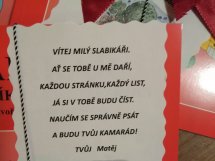 VÍTEJ MILÝ SLABIKÁŘI.
AŤ SE TOBĚ U MĚ DAŘÍ,
KAŽDOU STRÁNKU,KAŽDÝ LIST,
JÁ SI V TOBĚ BUDU ČÍST.
NAUČÍM SE SPRÁVNĚ PSÁT
A BUDU TVŮJ KAMARÁD!
TVŮJ Matěj